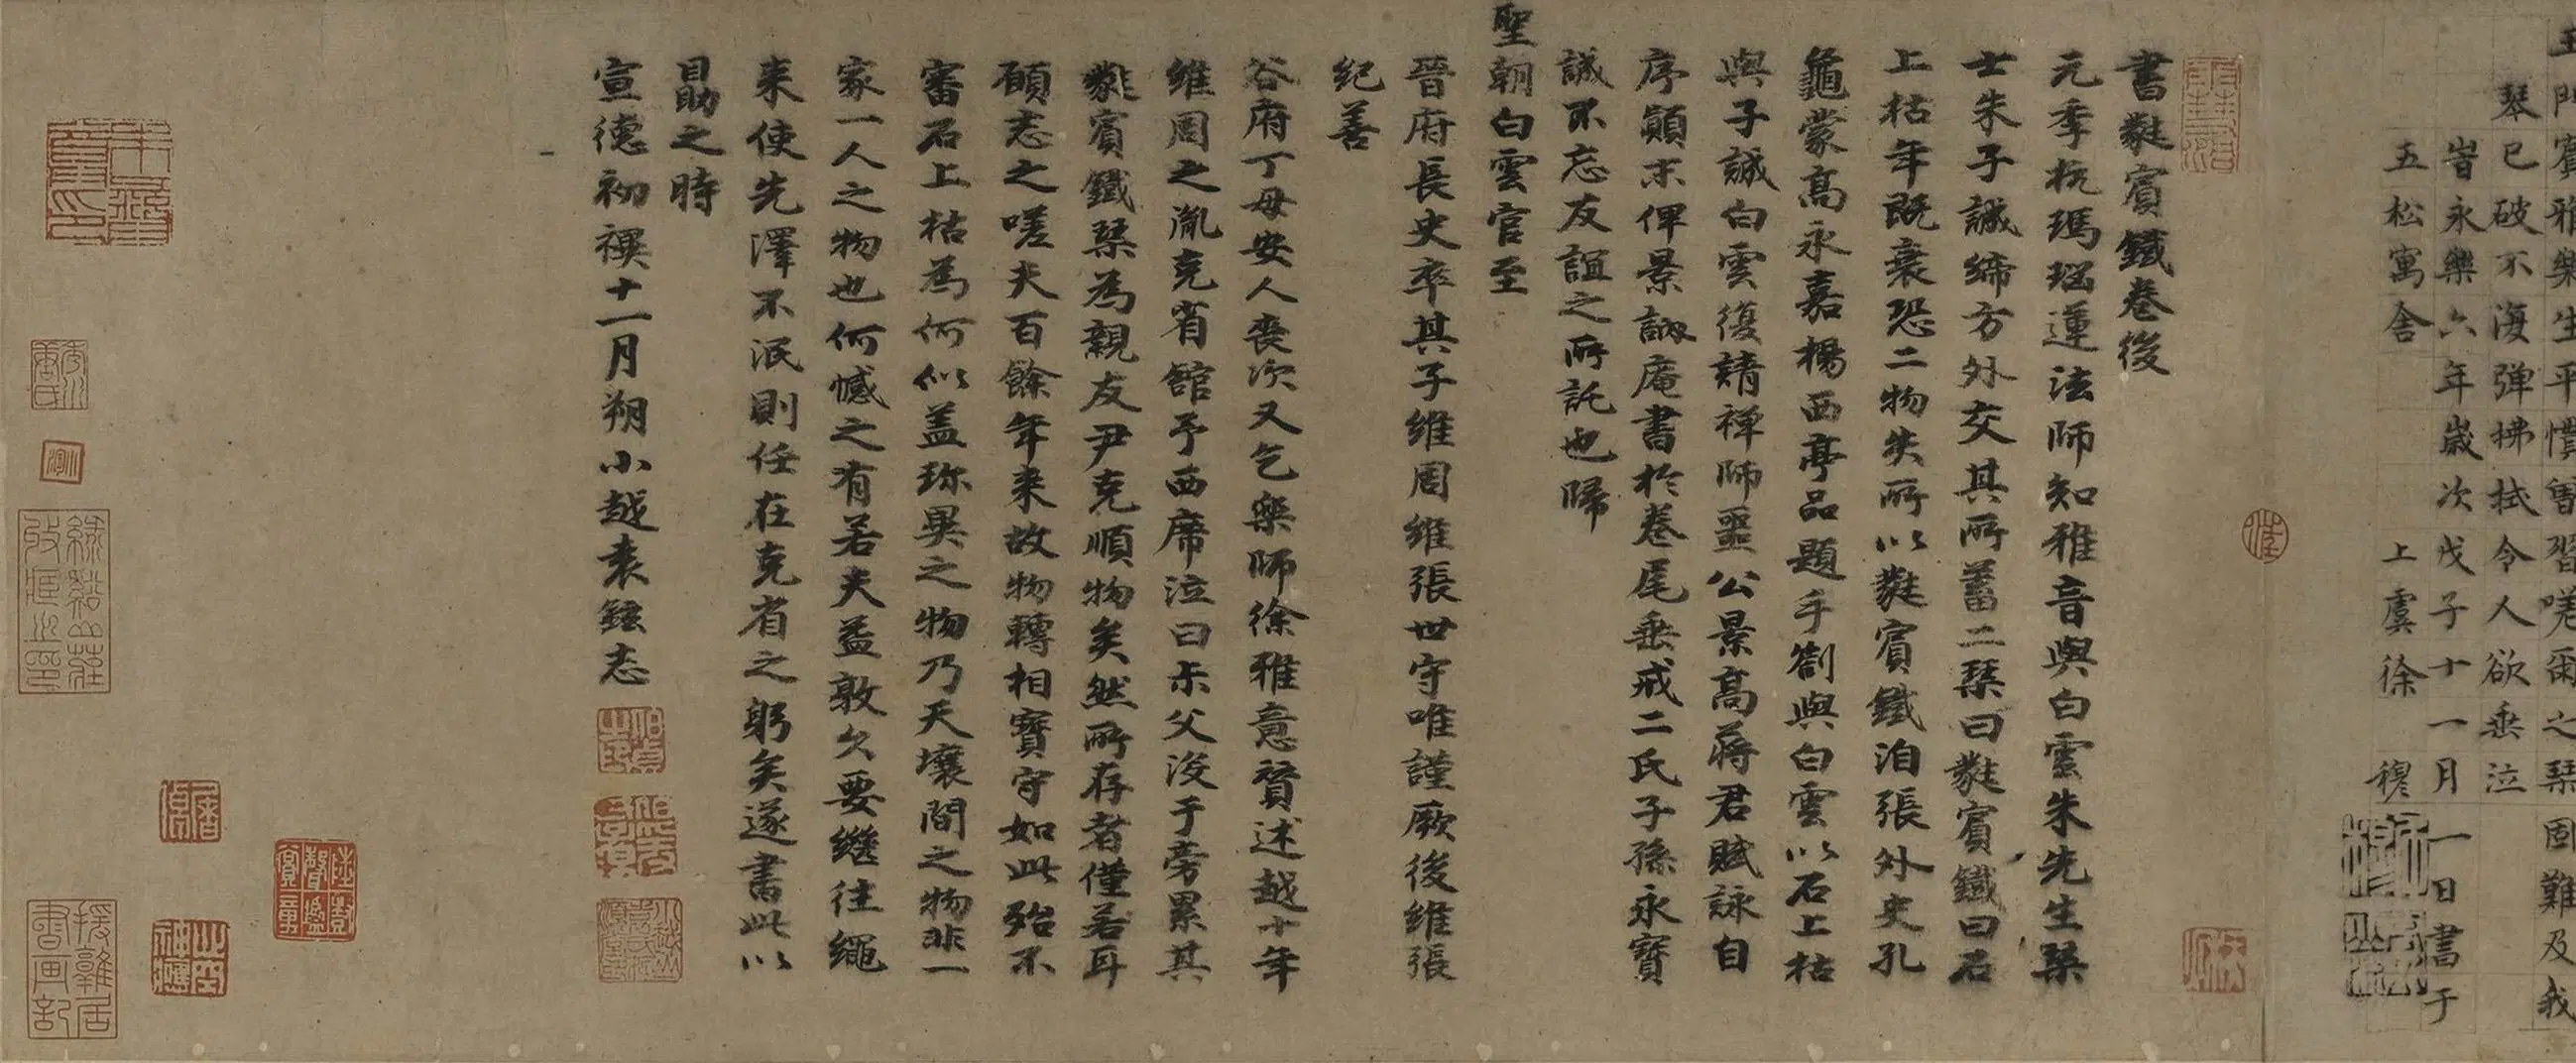 王門賓雅樂生平慣曾習嗟爾之琴固難及我
琴已破不復彈拂拭令人欲垂泣
旹永樂六年歲次戊子十一月一日書于
五松寓舍 上虞徐 穆
書蕤賓鐵卷後
元季杭瑪瑙蓮法師知雅音與白雲朱先生琴
士朱子誠締方外交其所蓄二琴曰蕤賓鐵曰石
上枯年既衰恐二物失所以蕤賓鐵洎張外史孔
龜蒙高永嘉楊西亭品題手劄與白雲以石上枯
與子誠白雲復請禪師噩公景高蔣君賦詠自
序顛末俾景訥庵書於卷尾垂戒二氏子孫永寶
誠不忘友誼之所託也歸
聖朝白雲官至
晉府長史卒其子維周維張世守唯謹厥後維張
紀善
谷府丁母安人喪次又乞樂師徐雅意賛述越十年
維周之胤克省舘予西席泣曰未父沒于旁累其
蕤賓鐵琴為親友尹克順物矣然所存者僅若耳
願志之嗟夫百餘年來故物轉相寶守如此殆不
審石上枯為何似盖珎異之物乃天壤間之物非一
家一人之物也何憾之有若夫益敦久要繼往繩
来使先澤不泯則任在克省之躬矣遂書此以
勗之時
宣德初禩十一月朔小越袁鉉志